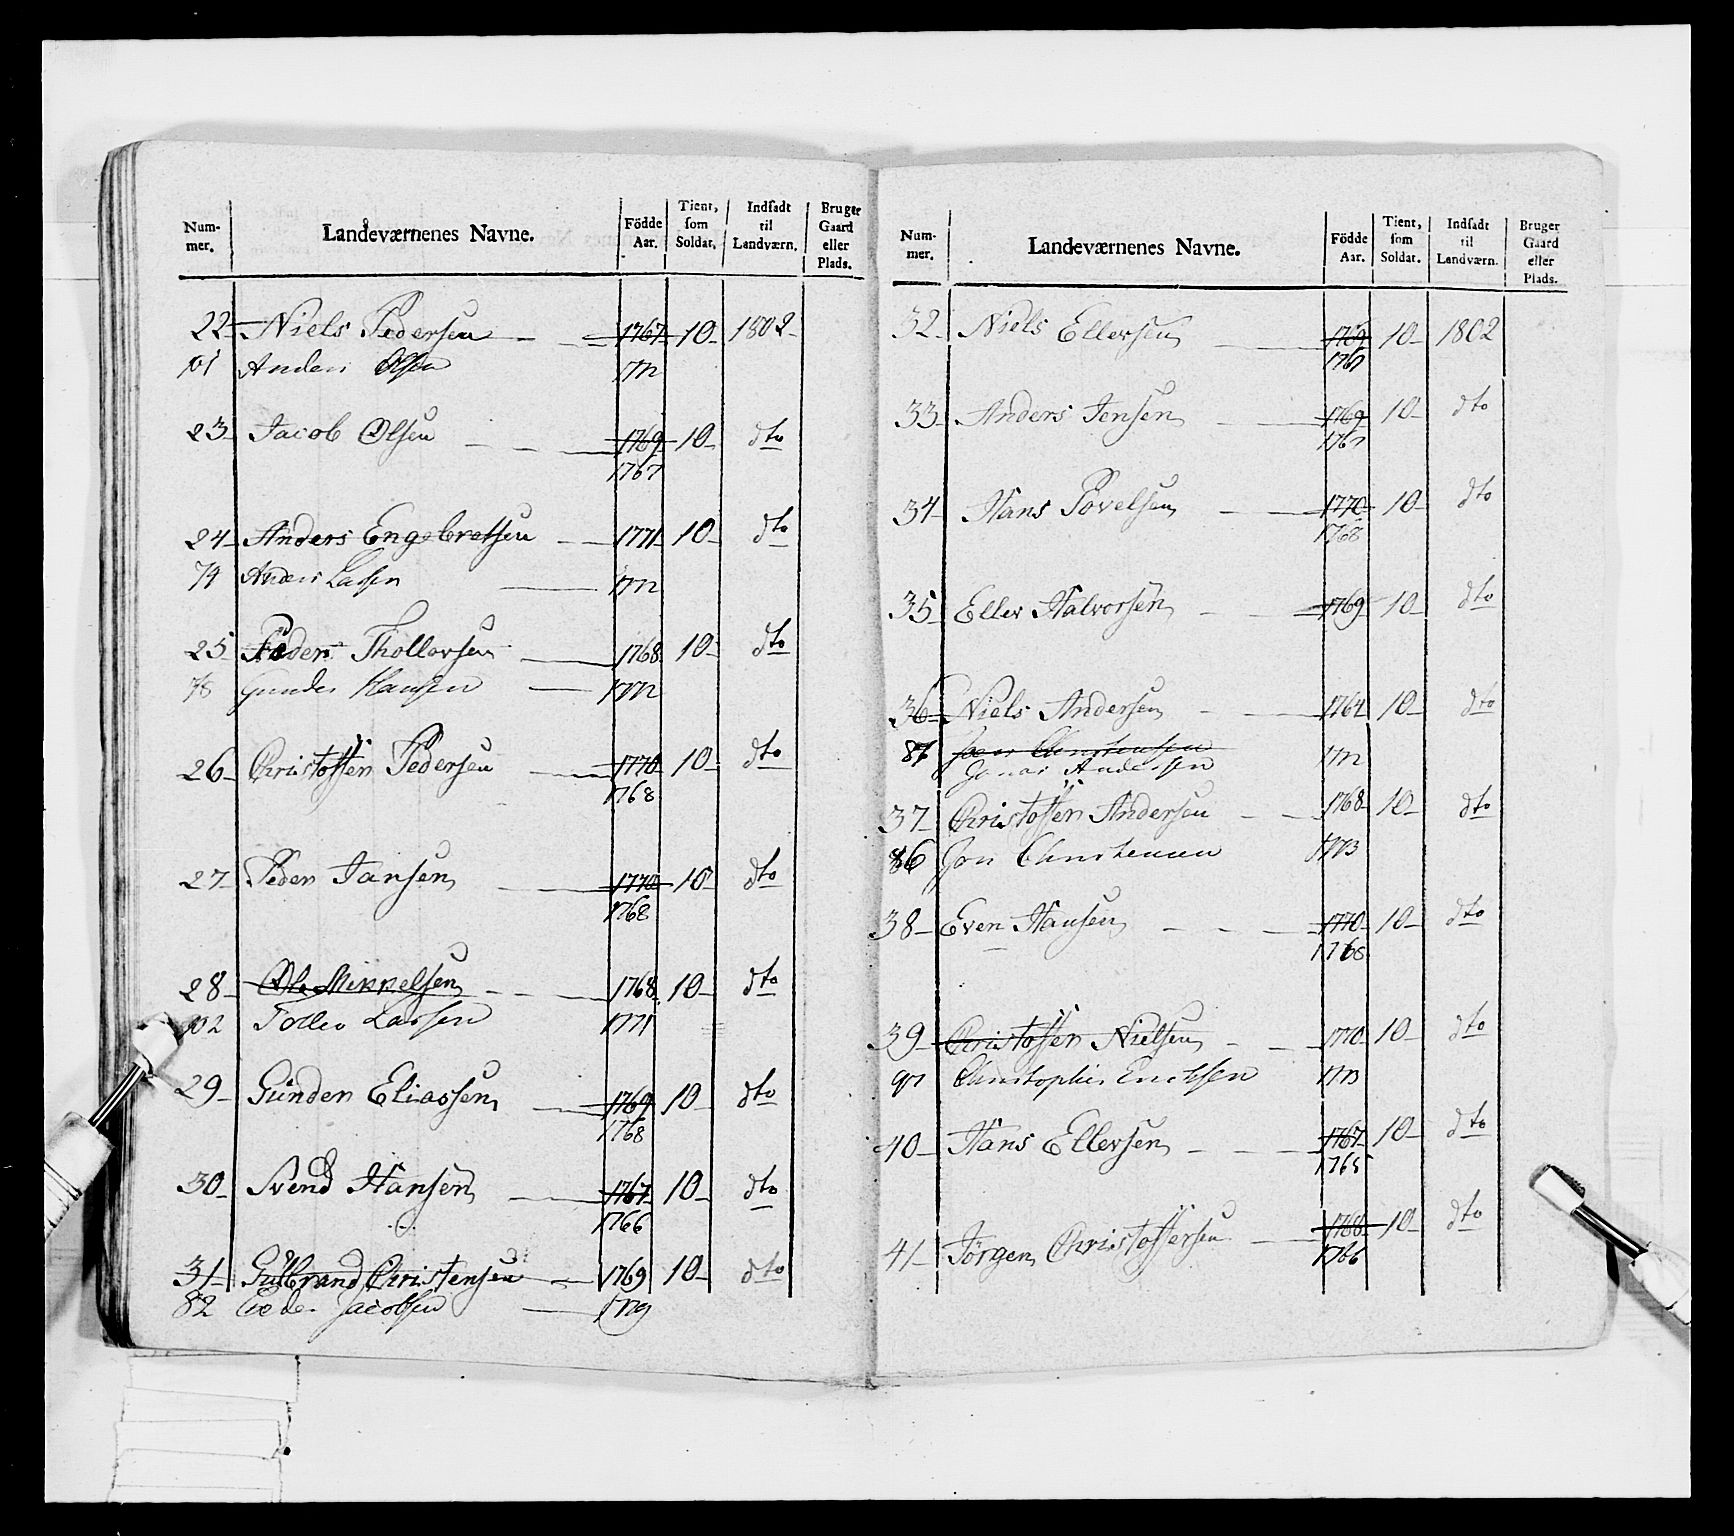 Num-mer. Landeværnenes Navne. Födde Aar. Tient, som Soldat. Indsadt til Landværn. Bruger Gaard eller Plads.
22 Niels Pedersen 1767 10 1802
101 Anders Olsen 1772
23 Jacob Olsen 1769 10 dto
1767
24 Anders Engebretsen 1771 10 dto
74 Anders Larsen 1772
25 Peder Thollersen 1768 10 dto
78 Gunder Hansen 1772
26 Christoffer Pedersen 1770 10 dto
1768
27 Peder Jansen 1770 10 dto
1768
28 Ole Mikkelsen 1768 10 dto
102 Toller Larsen 1771
29 Gunder Eliassen 1769 10 dto
1768
30 Svend Hansen 1767 10 dto
1766
31 Gulbrand Christensen 1769 10 dto
82 Peder Jacobsen
Num-mer. Landeværnenes Navne. Födde Aar. Tient, som Soldat. Indsadt til Landværn. Bruger Gaard eller Plads.
32 Niels Ellersen 1769 10 1802
1767
33 Anders Jensen 1769 10 dto
1767
34 Hans Povelsen 1770 10 dto
1768
35 Eller Halvorsen 1769 10 dto
36 Niels Andersen 1764 10 dto
87 Christensen 1772
Gunar Andersen
37 Christoffer Andersen 1768 10 dto
86 Jon Christensen 1773
38 Even Hansen 1770 10 dto
1768
39 Christoffer Nielsen 1770 10 dto
97 Christopher Erichsen 1773
40 Hans Ellersen 1767 10 dto
1765
41 Jörgen Christoffersen 1768 10 dto
1766